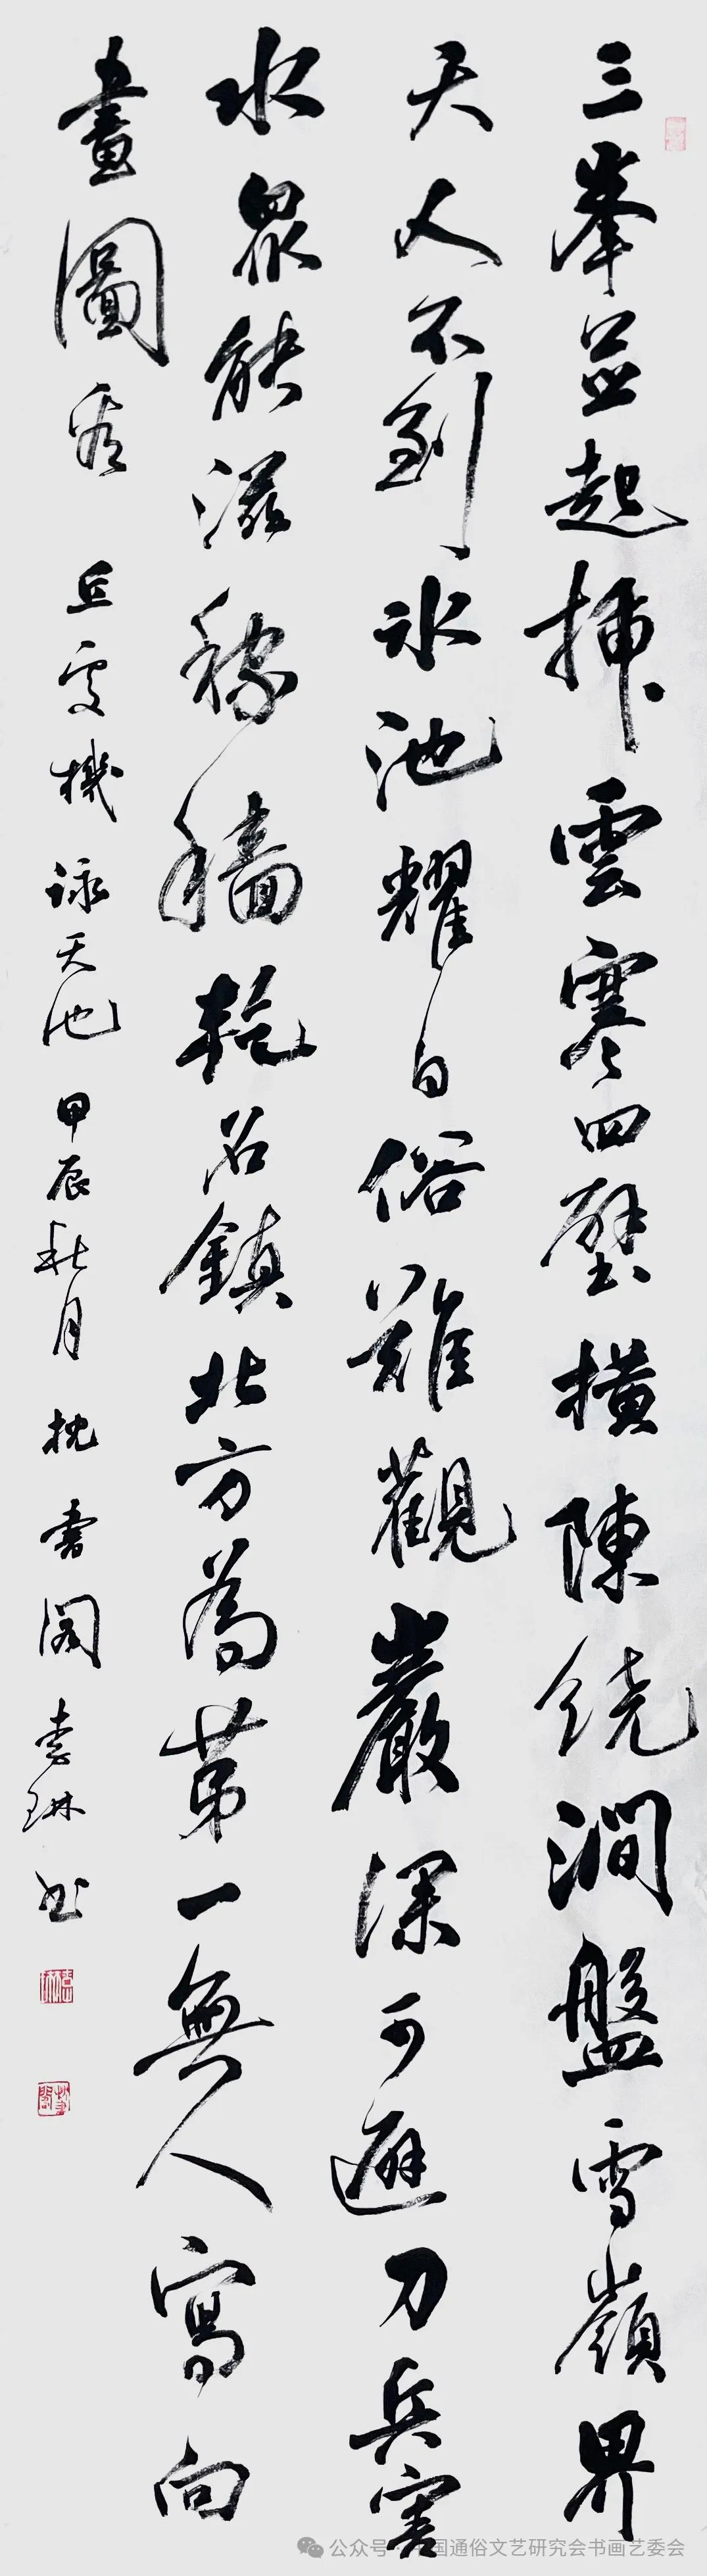 三峯並起插雲寒四壁橫陳绕澗盤雪嶺界
天人不到氷池耀日俗難觀巖深可避刀兵害
水眾能滋稼穡乾名鎮北方為苐一無人寫向
畫圖看
丘處機詠天池甲辰秋月枕書閣李琳书
公众号·中国通俗文艺研究会书画艺委会